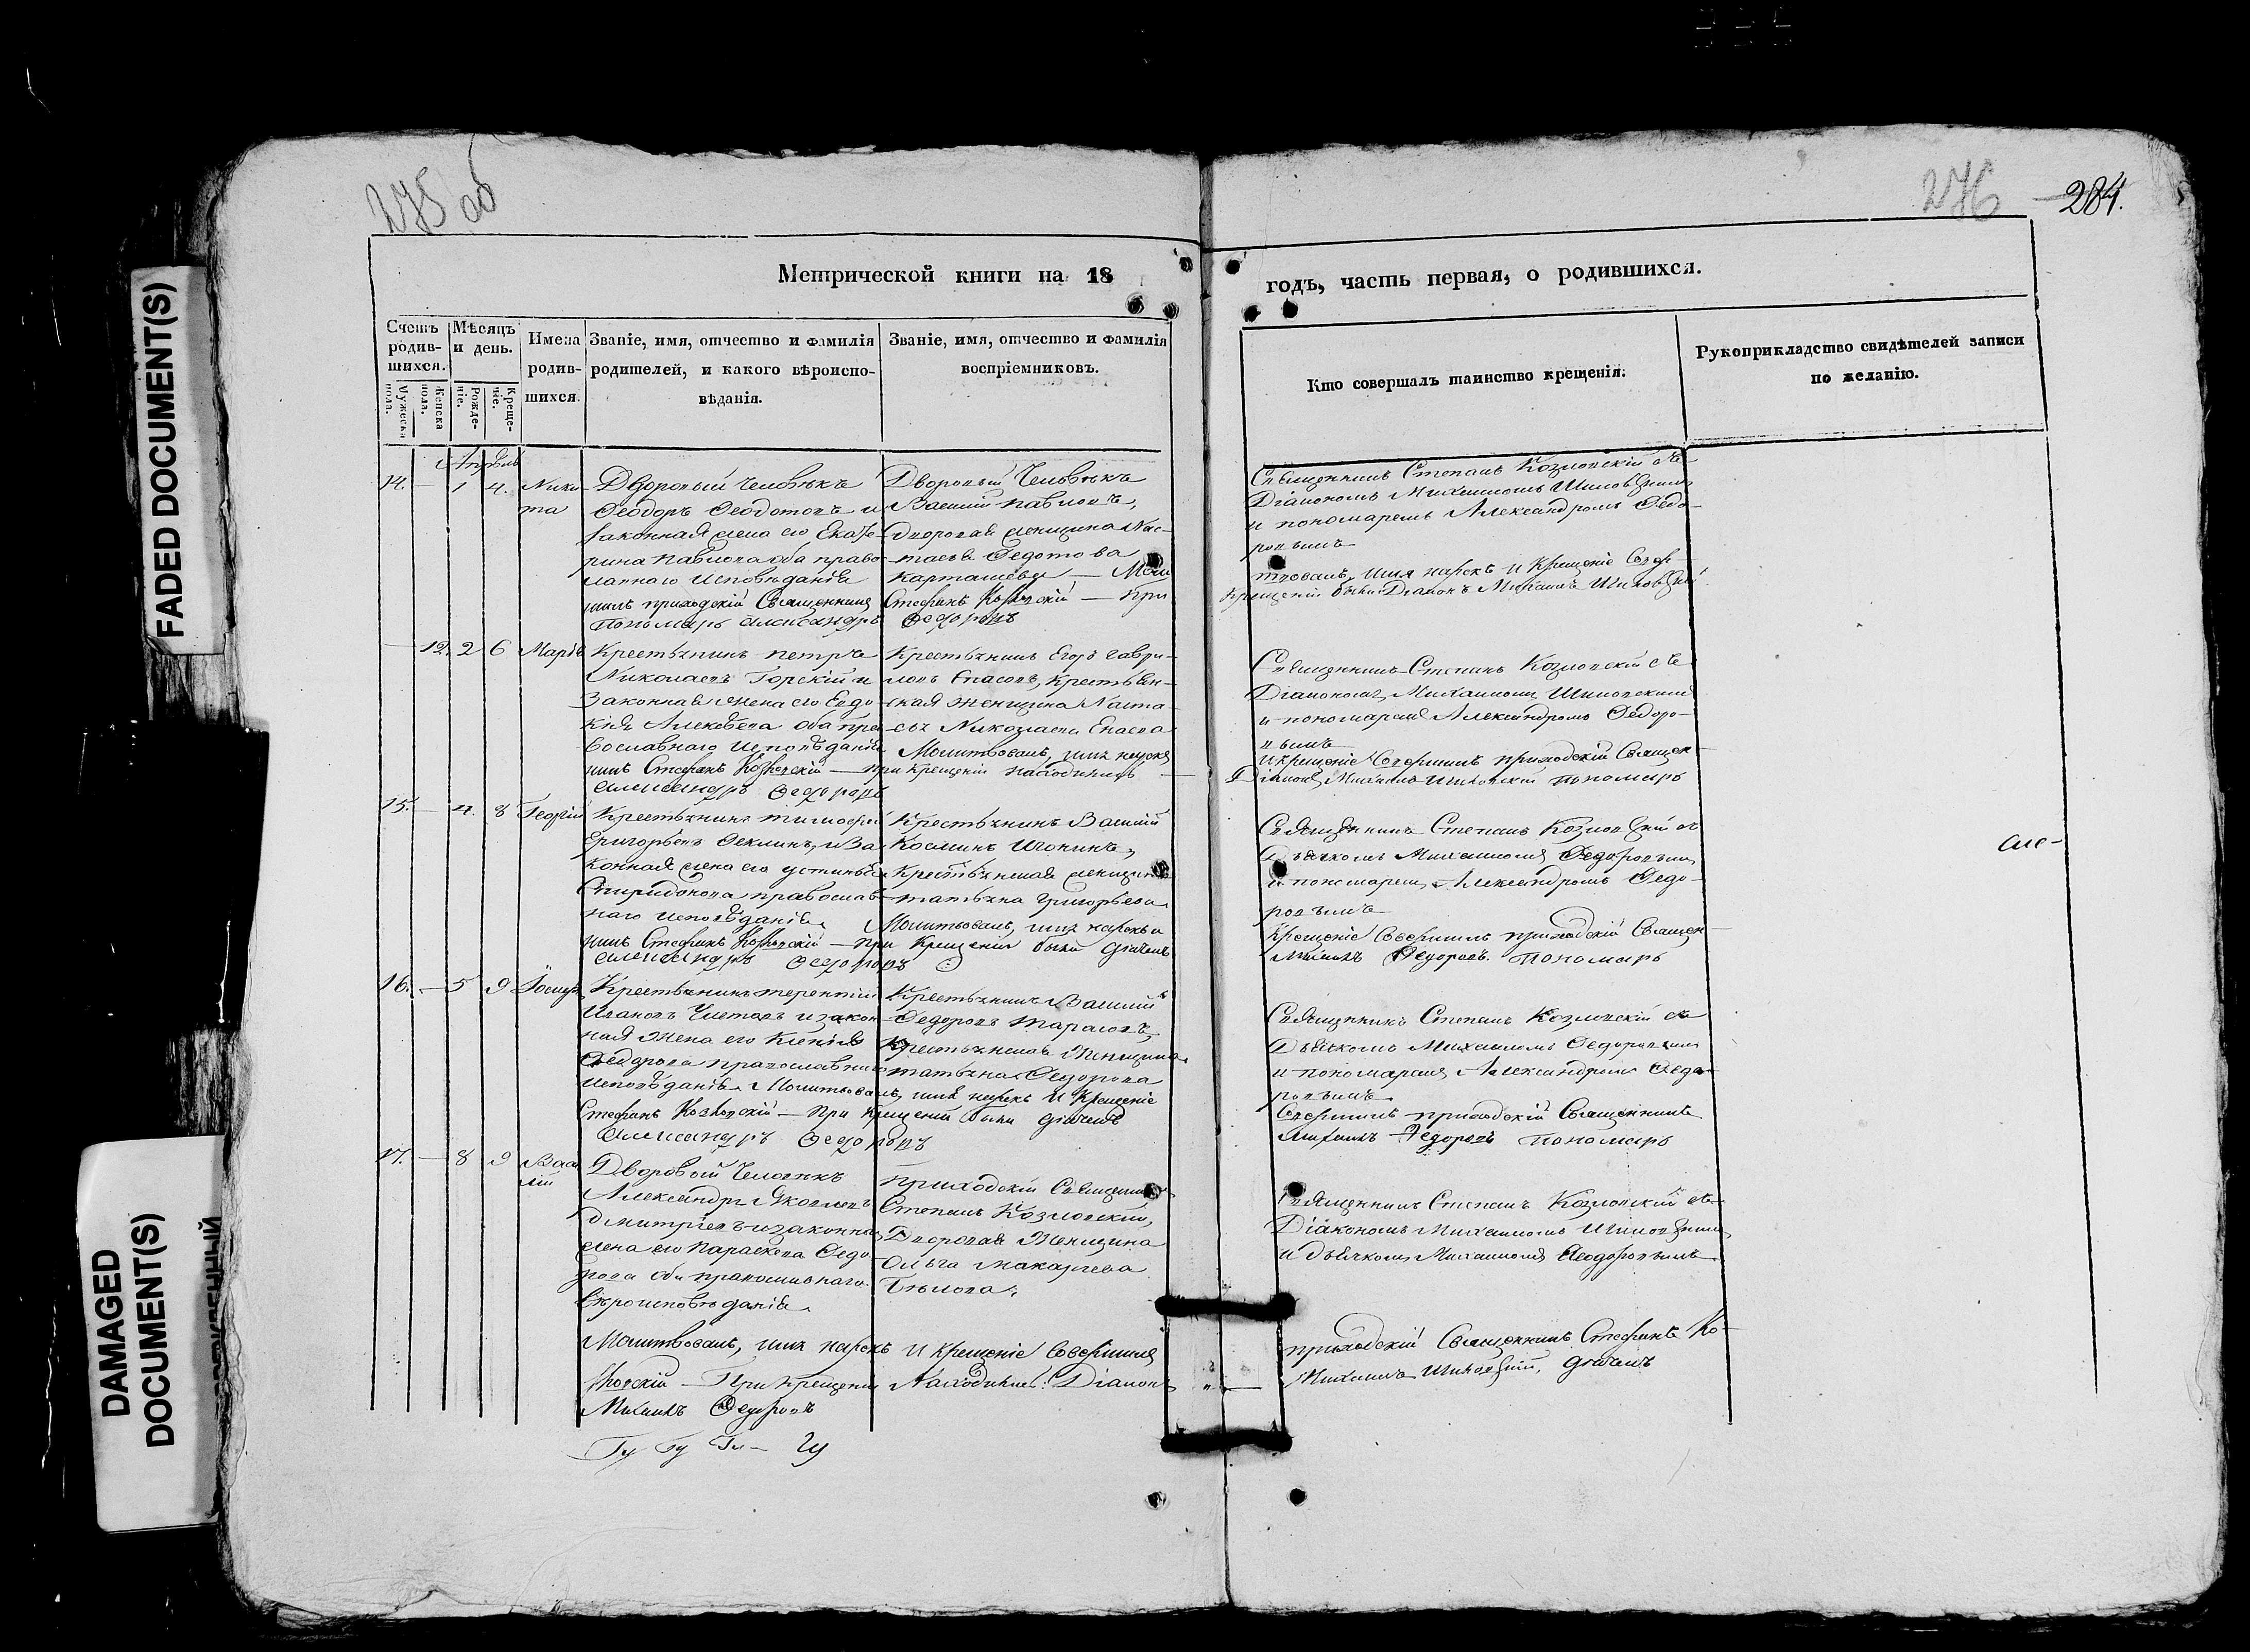 FADED DOCUMENT(S)
DAMAGED
DOCUMENT(S)
275 об
276
284.
Метрической книги на 18
годъ, часть первая, о родившихся.
Счетъ родив-шихся.
Мужеска пола.
Женска пола.
Мѣсяцъ и день.
Рожде-ніе.
Креще-ніе.
Имена родив-шихся.
Званіе, имя, отчество и фамилія родителей, и какого вѣроиспо-вѣданія.
Званіе, имя, отчество и фамилія воспріемниковъ.
Кто совершалъ таинство крещенія.
Рукоприкладство свидѣтелей записи по желанію.
Апрѣль
14. — 1 4. Ники-
та
Дворовый Человѣкъ
Феодоръ Феодотовъ и
законная жена его Екате-
рина Павлова оба право-
славнаго исповѣданія
Дворовый Человѣкъ
Василій Павловъ,
Дворовая женщина Нас-
тасья Федотова
Карташевы — Моли
Священникъ Степанъ Козловскій съ
Діакономъ Михаиломъ Шиловскимъ
и пономаремъ Александромъ Федо-
ровымъ
твовалъ, имя нарекъ и Крещеніе Совер-
шилъ приходскій Священникъ Стефанъ Козловскій — При
крещеніи были Діаконъ Михаилъ Шиловскій
Пономарь Александръ Федоровъ
— 12. 2 6 Марія
Крестьянинъ Петръ
Николаевъ Горскій и
Законная жена его Евдо-
кія Алексѣева оба пра-
вославнаго исповѣданія
Крестьянинъ Егоръ Гаври-
ловъ Власовъ, Крестьян-
ская женщина Наста-
сья Николаева
Молитвовалъ, имя нарекъ
Священникъ Степанъ Козловскій съ
Діакономъ Михаиломъ Шиловскимъ
и пономаремъ Александромъ Федоро-
вымъ
и крещеніе Совершилъ приходскій Священ-
никъ Стефанъ Козловскій — При крещеніи находились —
Діаконъ Михаилъ Шиловскій Пономарь
Александръ Федоровъ
15. — 4. 8 Георгій
Крестьянинъ Тимофей
Григорьевъ и За-
конная жена его Устинья
Спиридонова православ-
наго исповѣданія.
Крестьянинъ Василій
Косминъ
Крестьянская женщина
Татьяна Григорьева
Молитвовалъ, имя нарекъ и
Священникъ Степанъ Козловскій съ
Дьячкомъ Михаиломъ Федоровымъ
и пономаремъ Александромъ Федо-
ровымъ
Крещеніе Совершилъ приходскій Священ-
никъ Стефанъ Козловскій — При Крещеніи были дьячекъ
Михаилъ Федоровъ. Пономарь
Александръ Федоровъ
16. — 5 9 Іосифъ
Крестьянинъ Терентій
Ивановъ и закон-
ная жена его Ксенія
Федорова православнаго
исповѣданія. Молитвовалъ, имя нарекъ и Крещеніе
Крестьянинъ Василій
Федоровъ Тарасовъ,
Крестьянская Женщина
Татьяна Федорова
Священникъ Степанъ Козловскій съ
Дьячкомъ Михаиломъ Федоровымъ
и пономаремъ Александромъ Федо-
ровымъ
Совершилъ приходскій Священникъ
Стефанъ Козловскій — При крещеніи были дьячекъ
Михаилъ Федоровъ Пономарь
Александръ Федоровъ
17. — 8 9 Васи-
лій
Дворовый Человѣкъ
Александръ Яковлевъ
Дмитріевъ и законная
жена его Параскева Федо-
рова оба православнаго
вѣроисповѣданія.
Приходскій Священникъ
Степанъ Козловскій,
Дворовая Женщина
Ольга Макарьева
Бѣлова.
Священникъ Степанъ Козловскій съ
Діакономъ Михаиломъ Шиловскимъ
и дьячкомъ Михаиломъ Феодоровымъ
Молитвовалъ, имя нарекъ и крещеніе Совершилъ
приходскій Священникъ Стефанъ Ко-
зловскій — При Крещеніи Находились: Діаконъ
Михаилъ Шиловскій, дьячекъ
Михаилъ Федоровъ